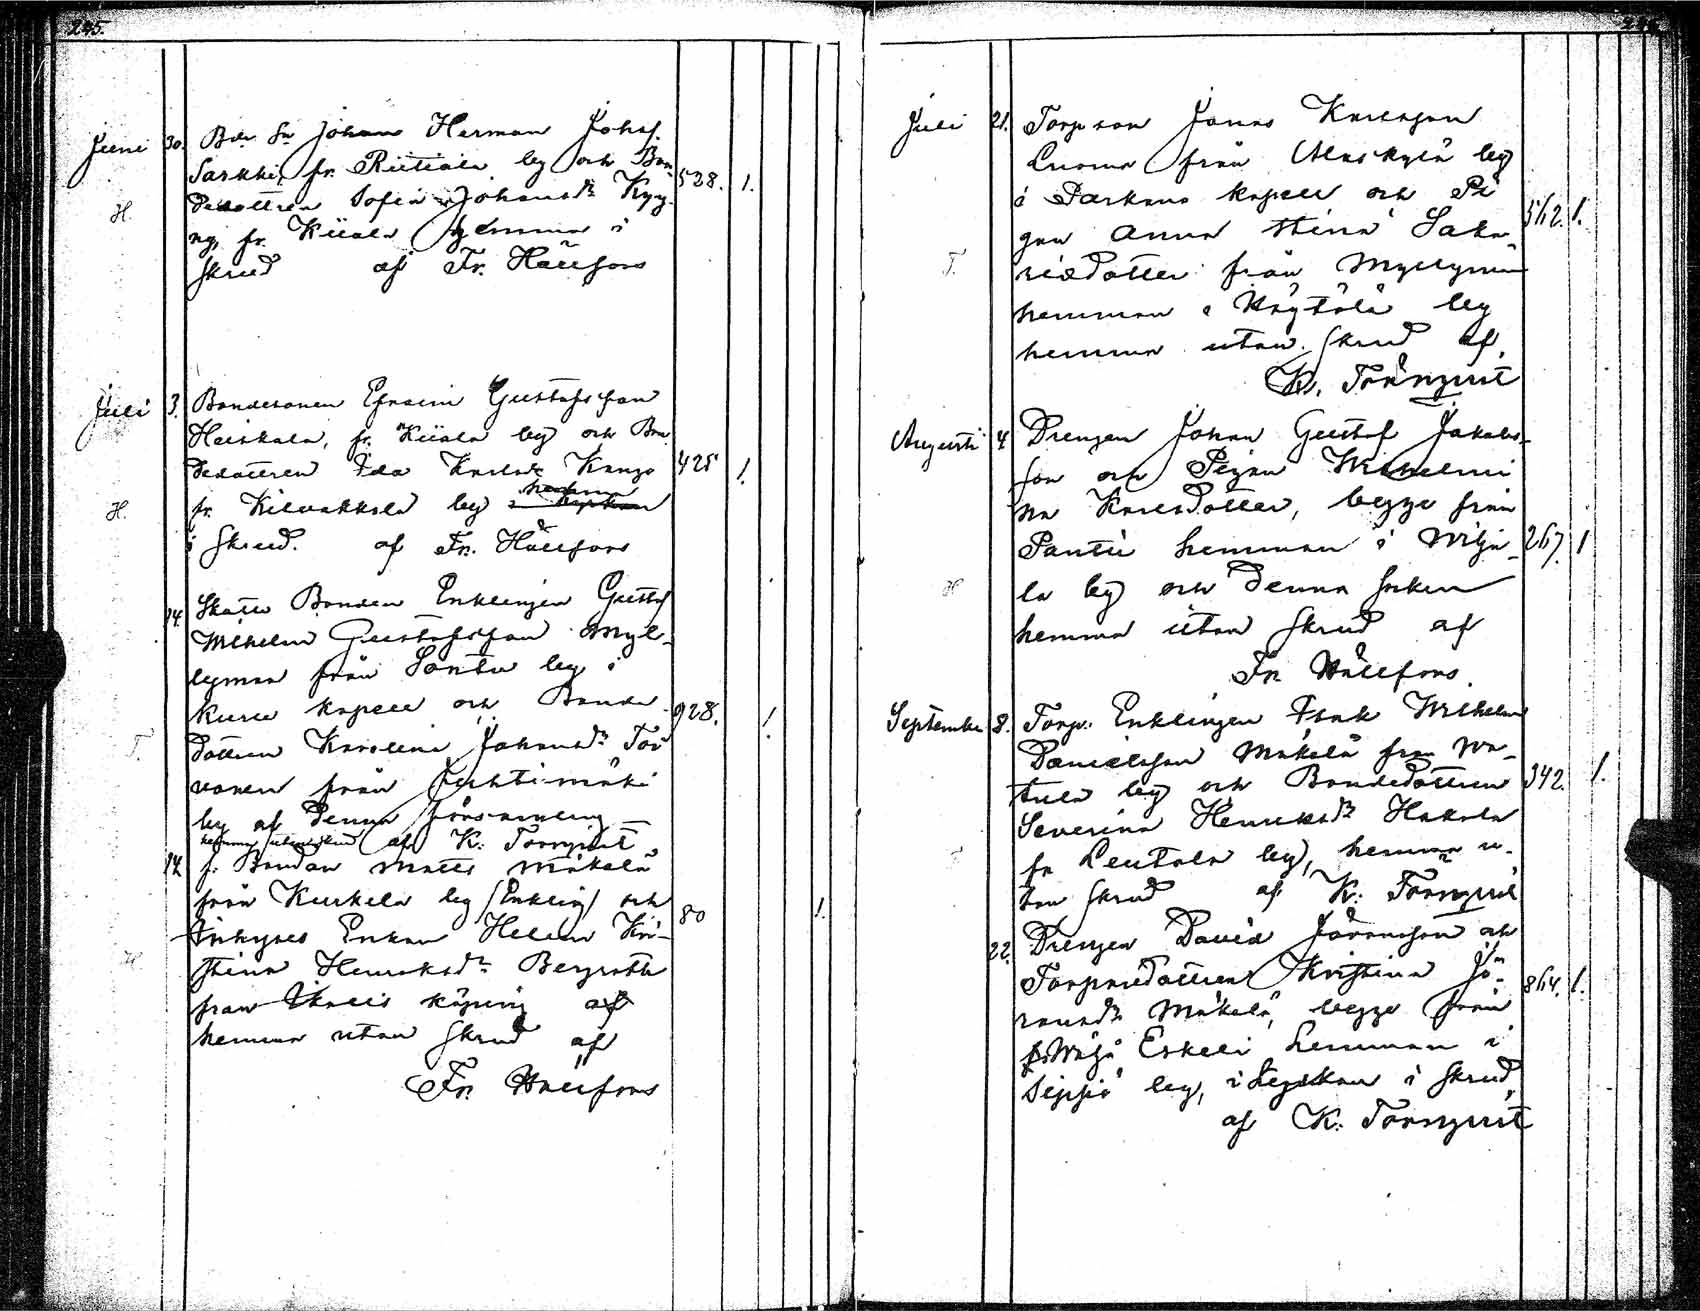 245.
Juni 30. Bde Sn Johan Herman Johsf.
Sarkki, fr. Riitiala by och Bon-
dedottren Sofia Johansdr 528. 1.
H. fr. Kiiala hemma i
skrud af Fr. Hällfors
Juli 3. Bondesonen Efraim Gustafsson
Heiskala, fr. Kiiala by och Bon-
dedottren Ida Karlsdr Kango 425 1.
hemma
H. fr. Kilvakkala by i kyrkan
i skrud. af Fr. Hällfors
14. Skatte Bonden Enklingen Gustaf
Wilhelm Gustafsson Myl-
lyman från Sontu by i
Kuru kapell och Bonde- 928. 1.
T. dottren Karolina Johansdr Toi-
vonen från Juhtimäki
by af denna församling
hemma utan skrud af K. Törnqvist
14 f. Bondan Matts Mäkelä
från Kurkela by (Enkling) och 80 1.
Enkan Helena Kri-
H. stina Henriksdr Bergroth
från Ikalis köping af
hemma utan skrud af
Fr. Hällfors
Juli 21. Torp son Jonas Karlsson
Luoma från Alaskylä by
i Parkano kapell och Pi-
gan Anna Stina Saka- 562. 1.
T. riasdotter från Myllyniemi
hemman i Höytölä by
hemma utan skrud af
K. Törnqvist
Augusti 4 Drengen Johan Gustaf Jakobs-
son och Pigan Wilhelmi-
na Karlsdotter, begge från
Pantti hemman i Wilja- 267. 1
H la by och denna socken
hemma utan skrud af
Fr. Hällfors.
September 8. Torp. Enklingen Isak Wilhelm
Danielsson Mäkelä från Wa-
tula by och Bondedottren 342. 1.
Severina Henriksdr Hakala
T. fr Leutola by, hemma u-
tan skrud af K. Törnqvist
22. Drengen David Jöransson och
Torparedottren Kristina Jö- 864. 1.
ransdr Mäkelä, begge från
Eskeli hemman i
Sipsiö by, i kyrkan i skrud,
af K. Törnqvist